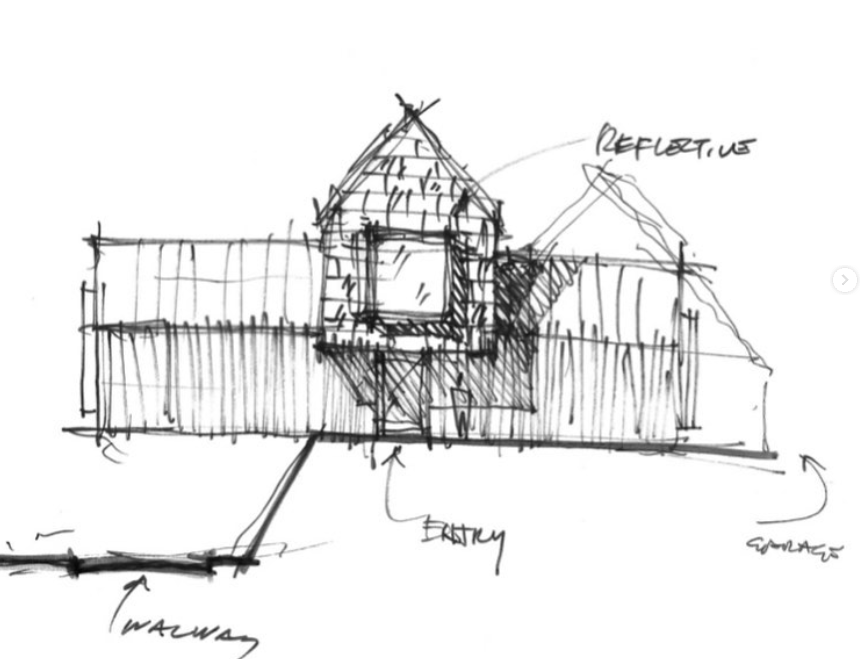 REFLECTIVE
ENTRY
GARAGE
WALWAY